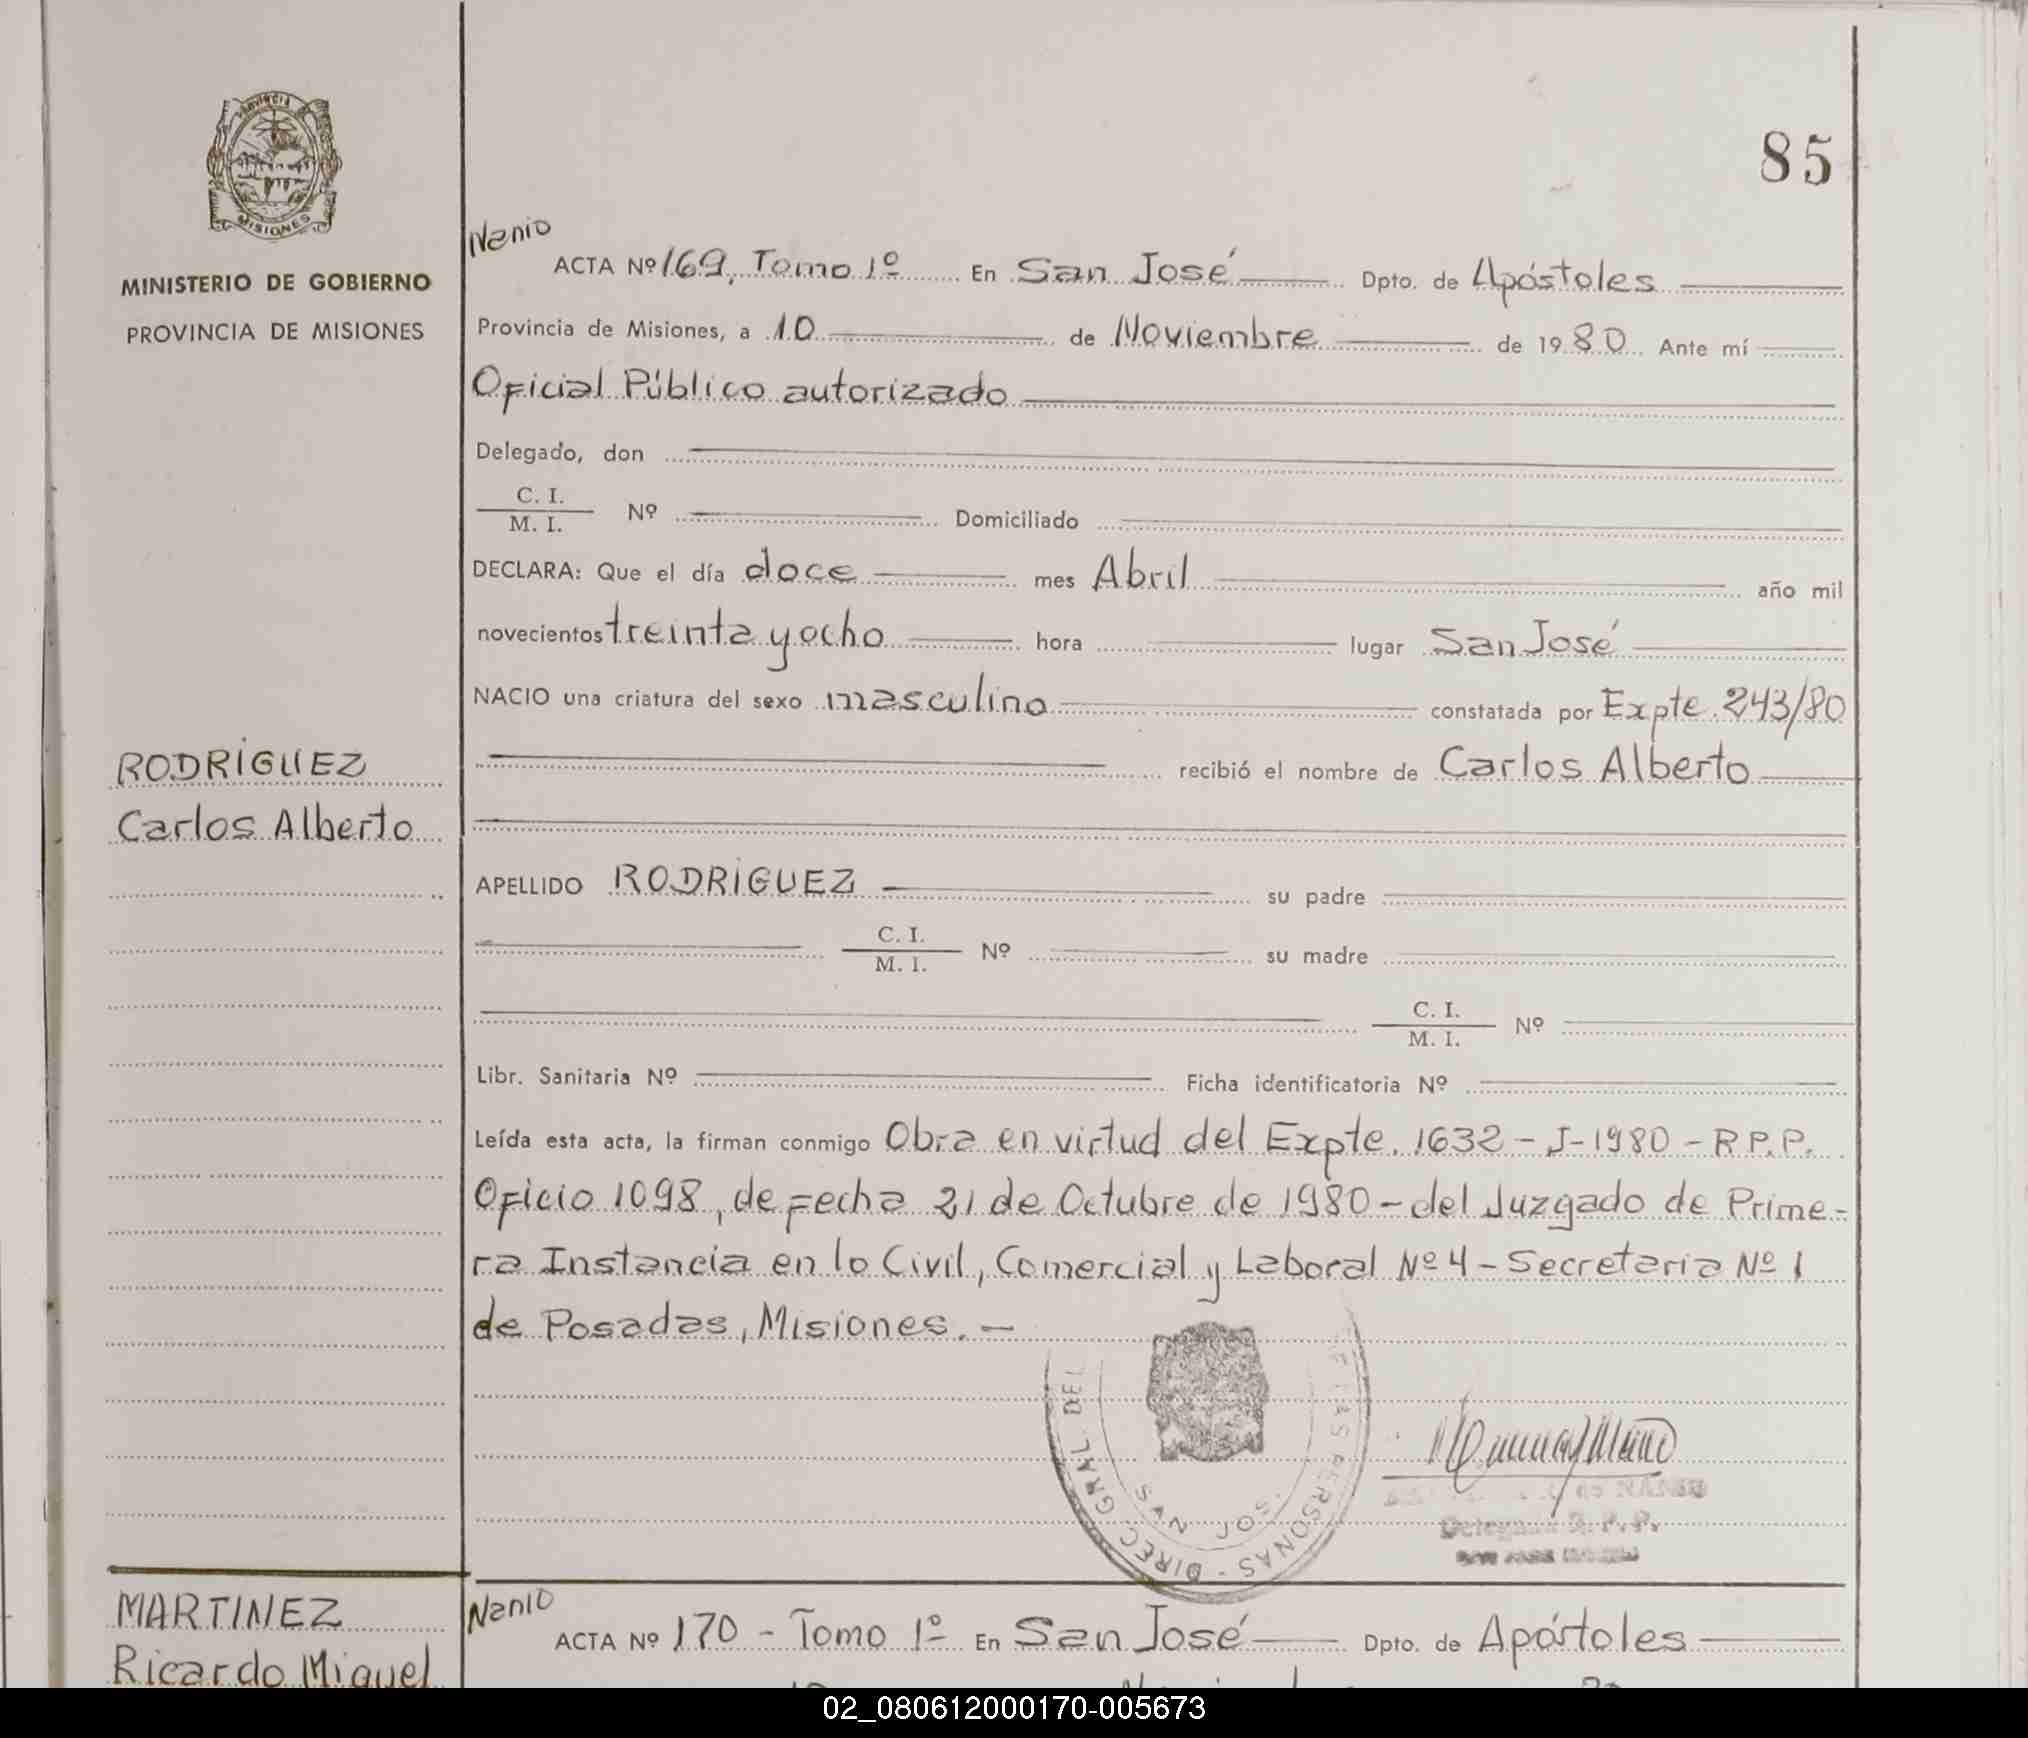 85
PROVINCIA
MISIONES
MINISTERIO DE GOBIERNO
PROVINCIA DE MISIONES
Nanio
ACTA Nº 169, Tomo 1º En San José Dpto. de Apóstoles
Provincia de Misiones, a 10 de Noviembre de 1980 Ante mí
Oficial Público autorizado
Delegado, don
C. I.
M. I. Nº Domiciliado
DECLARA: Que el día doce mes Abril año mil
novecientos treinta y ocho hora lugar San José
NACIO una criatura del sexo masculino constatada por Expte. 243/80
RODRÍGUEZ
recibió el nombre de Carlos Alberto
Carlos Alberto
APELLIDO RODRÍGUEZ su padre
C. I.
M. I. Nº su madre
C. I.
M. I. Nº
Libr. Sanitaria Nº Ficha identificatoria Nº
Leída esta acta, la firman conmigo Obra en virtud del Expte. 1632-J-1980-R.P.P.
Oficio 1098, de fecha 21 de Octubre de 1980-del Juzgado de Prime-
ra Instancia en lo Civil, Comercial y Laboral Nº 4-Secretaria Nº 1
de Posadas, Misiones.-
DIREC GRAL DEL PERSONAS
SAN JOSE
R. P. P.
MARTINEZ
Ricardo Miguel
Nanio
ACTA Nº 170 - Tomo 1º En San José Dpto. de Apóstoles
02_080612000170-005673